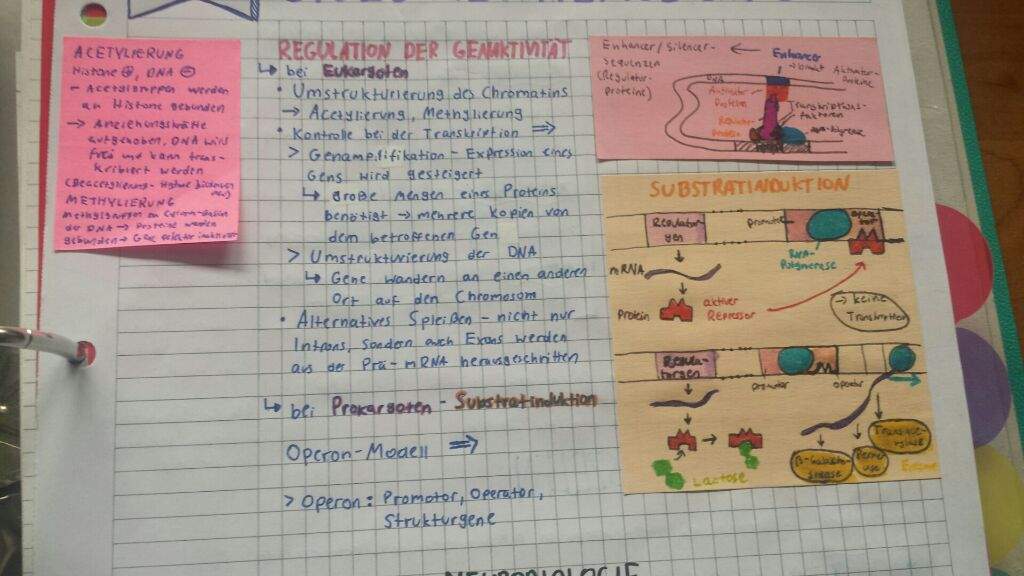 ACETYLIERUNG
Histone ⊕, DNA ⊖
- Acetylgruppen werden
an Histone gebunden
→ Anziehungskräfte
aufgehoben, DNA wird
frei und kann trans-
kribiert werden
METHYLIERUNG
Methylgruppen an Cytosin-Basen
der DNA → Proteine werden
gebunden → Gene
REGULATION DER GENAKTIVITÄT
↳ bei Eukaryoten
• Umstrukturierung des Chromatins
→ Acetylierung, Methylierung
• Kontrolle bei der Transkription ⇒
> Genamplifikation - Expression eines
Gens wird gesteigert
↳ große Mengen eines Proteins
benötigt → mehrere Kopien von
dem betroffenen Gen
> Umstrukturierung der DNA
↳ Gene wandern an einen anderen
Ort auf den Chromosom
• Alternatives Spleißen - nicht nur
Introns, sondern auch Exons werden
aus der Prä-mRNA herausgeschnitten
↳ bei Prokaryoten - Substratinduktion
Operon-Modell ⇒
> Operon: Promotor, Operator,
Strukturgene
Enhancer/Silencer-
Sequenzen
(Regulator-
proteine)
←
Enhancer
→ bindet Aktivator-
Proteine
DNA
Aktivator-
Proteine
Regulator-
Protein
Transkriptions-
faktoren
SUBSTRATINDUKTION
Regulator-
gen
promotor
operator
RNA-
Polymerase
mRNA
Protein
aktiver
REPRESSOR
→ keine
Transkription
Regula-
torgen
promotor
operator
Lactose
β-Galacto-
sidase
Perme-
ase
Transace-
tylase
Enzyme
NEUROBIOLOGIE